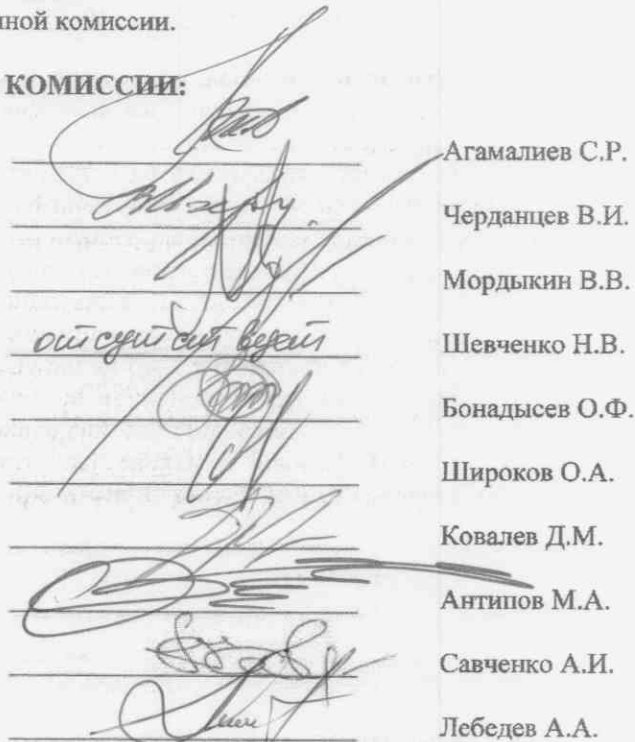 ной комиссии.
КОМИССИИ:
Агамалиев С.Р.
Черданцев В.И.
Мордыкин В.В.
отсутствует Шевченко Н.В.
Бонадысев О.Ф.
Широков О.А.
Ковалев Д.М.
Антипов М.А.
Савченко А.И.
Лебедев А.А.